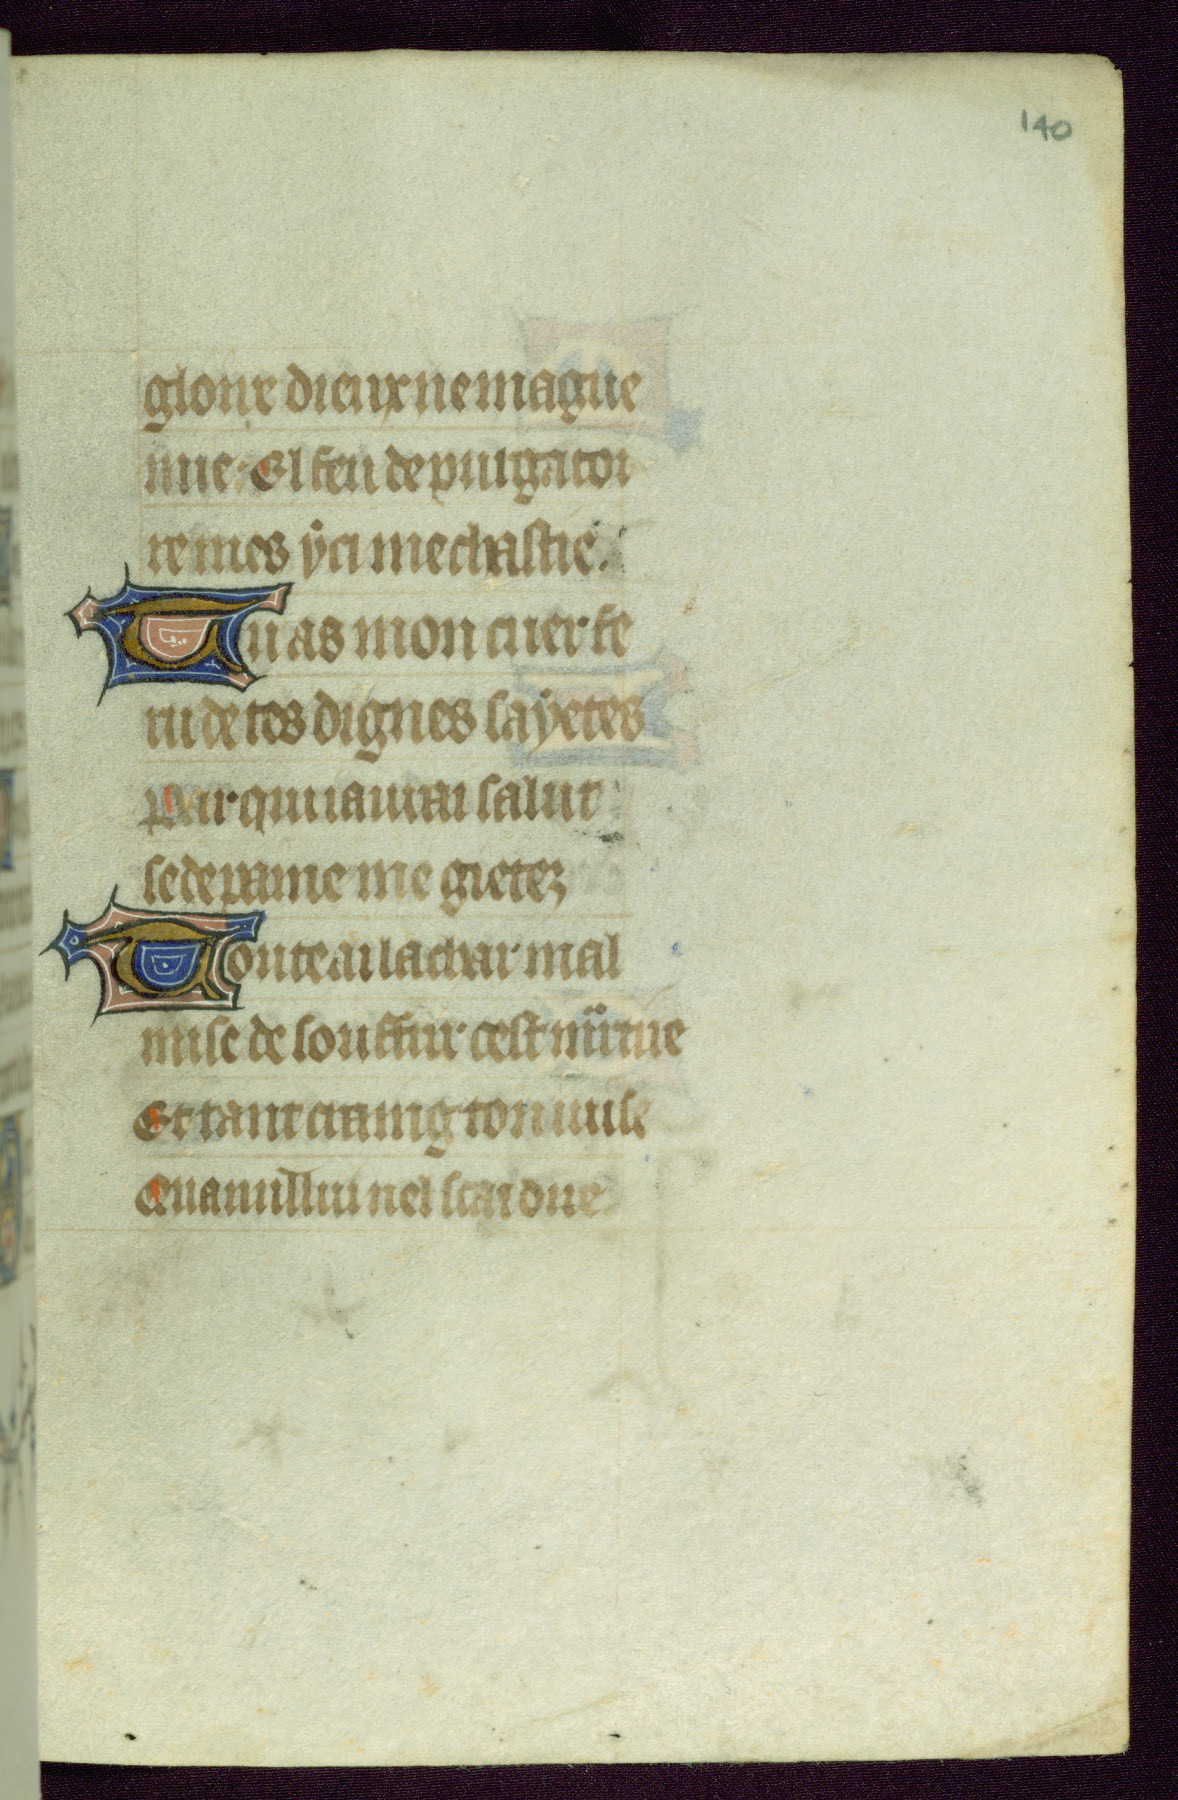 140
gloire dieux ne mague
rrie. El feu de purgator
re mes yci me chastie.
Tu as mon cuer fe
ru de tes dignes sayetes
Par qui iaurai salut
se de paine me gietez
Toute ai la char mal
mise de souffrir cest uirtue
Et tant craing ton iuise
Qua nullui nel scai due